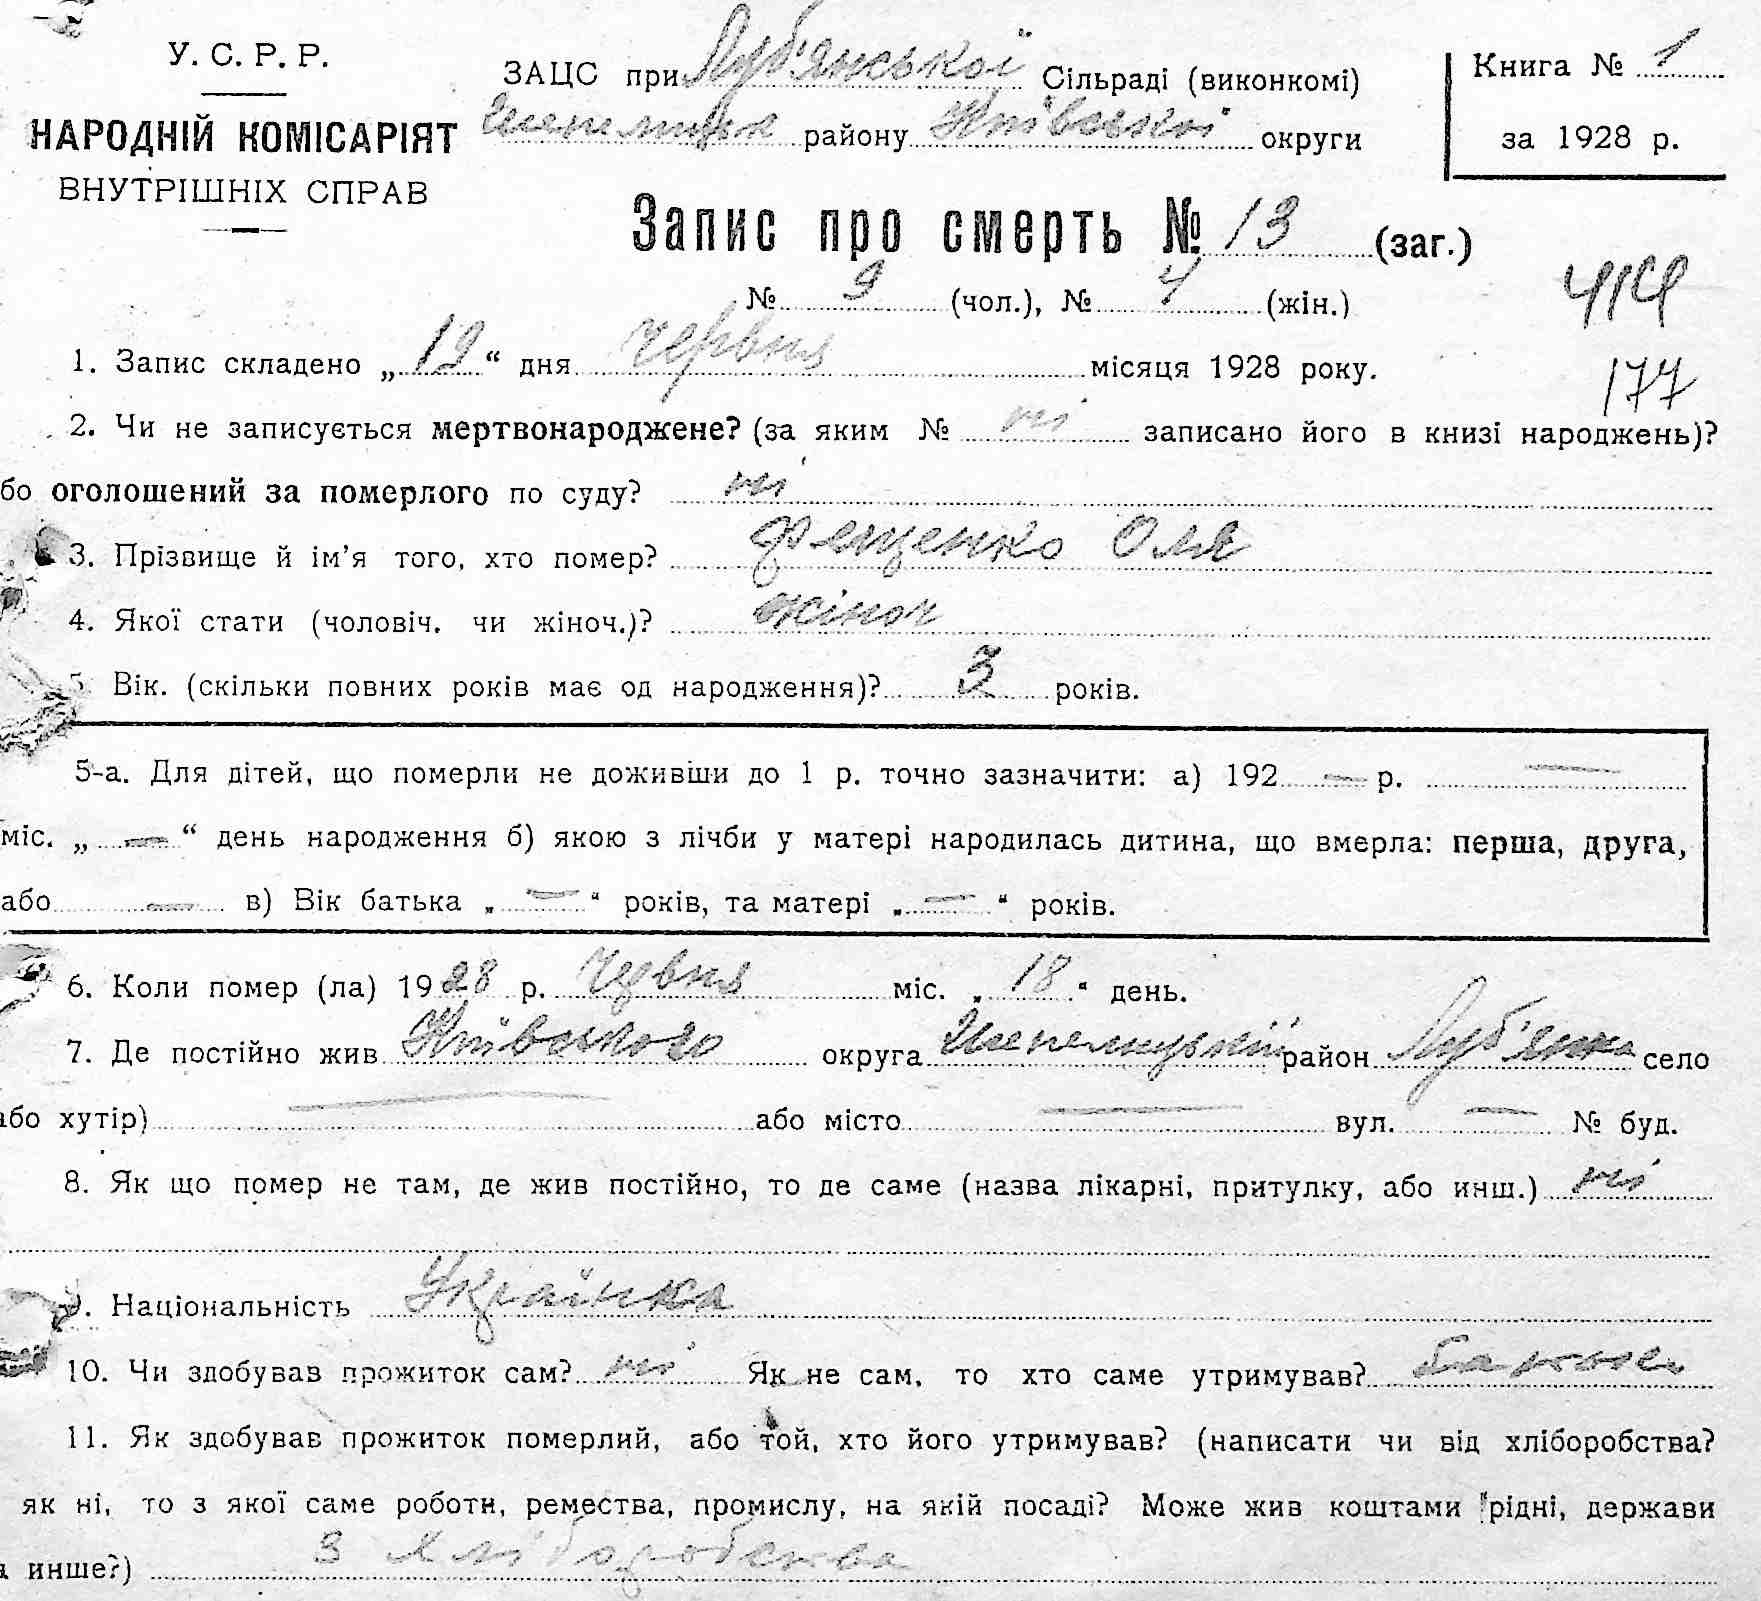 У. С. Р. Р.
НАРОДНІЙ КОМІСАРІЯТ
ВНУТРІШНІХ СПРАВ
ЗАЦС при Луб'янської Сільраді (виконкомі)
району Київської округи
Книга № 1
за 1928 р.
Запис про смерть № 13 (заг.)
№ 9 (чол.), № 4 (жін.)
414
1. Запис складено „19“ дня червня місяця 1928 року.
177
2. Чи не записується мертвонароджене? (за яким № ні записано його в книзі народжень)?
бо оголошений за померлого по суду? ні
3. Прізвище й ім'я того, хто помер? Фещенко Оля
4. Якої стати (чоловіч. чи жіноч.)? жіноч
5 Вік. (скільки повних років має од народження)? 3 років.
5-а. Для дітей, що померли не доживши до 1 р. точно зазначити: а) 192 — р. —
міс. „ — “ день народження б) якою з лічби у матері народилась дитина, що вмерла: перша, друга,
або — в) Вік батька „ — “ років, та матері „ — “ років.
6. Коли помер (ла) 1928 р. червня міс. „18“ день.
7. Де постійно жив Київського округа район Луб'янка село
або хутір) — або місто — вул. — № буд.
8. Як що помер не там, де жив постійно, то де саме (назва лікарні, притулку, або инш.) ні
9. Національність Українка
10. Чи здобував прожиток сам? ні Як не сам, то хто саме утримував? батько
11. Як здобував прожиток померлий, або той, хто його утримував? (написати чи від хліборобства?
як ні, то з якої саме роботи, ремества, промислу, на якій посаді? Може жив коштами рідні, держави
а инше?) З хліборобства